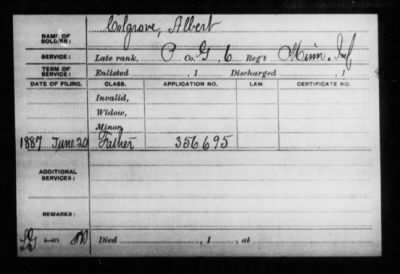 Colgrove, Albert
NAME OF SOLDIER:
SERVICE: Late rank, P Co. G, 6 Reg't Minn. Inf
TERM OF SERVICE: Enlisted , 1 Discharged , 1
DATE OF FILING. CLASS. APPLICATION NO. LAW. CERTIFICATE NO.
Invalid,
Widow,
Minor,
1887 June 20 Father 356.695
ADDITIONAL SERVICES:
REMARKS:
Died , 1 , at